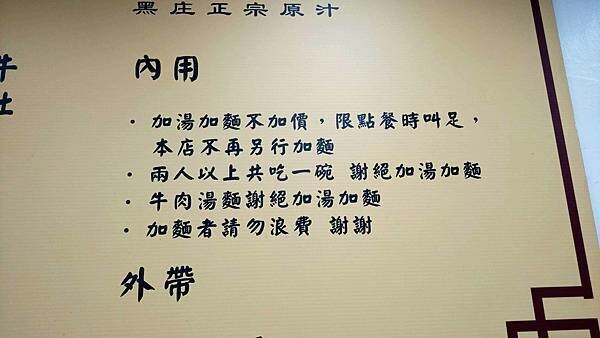 黑庄正宗原汁
牛
內用
· 加湯加麵不加價，限點餐時叫足，
本店不再另行加麵
· 兩人以上共吃一碗 謝絕加湯加麵
· 牛肉湯麵謝絕加湯加麵
· 加麵者請勿浪費 謝謝
外帶